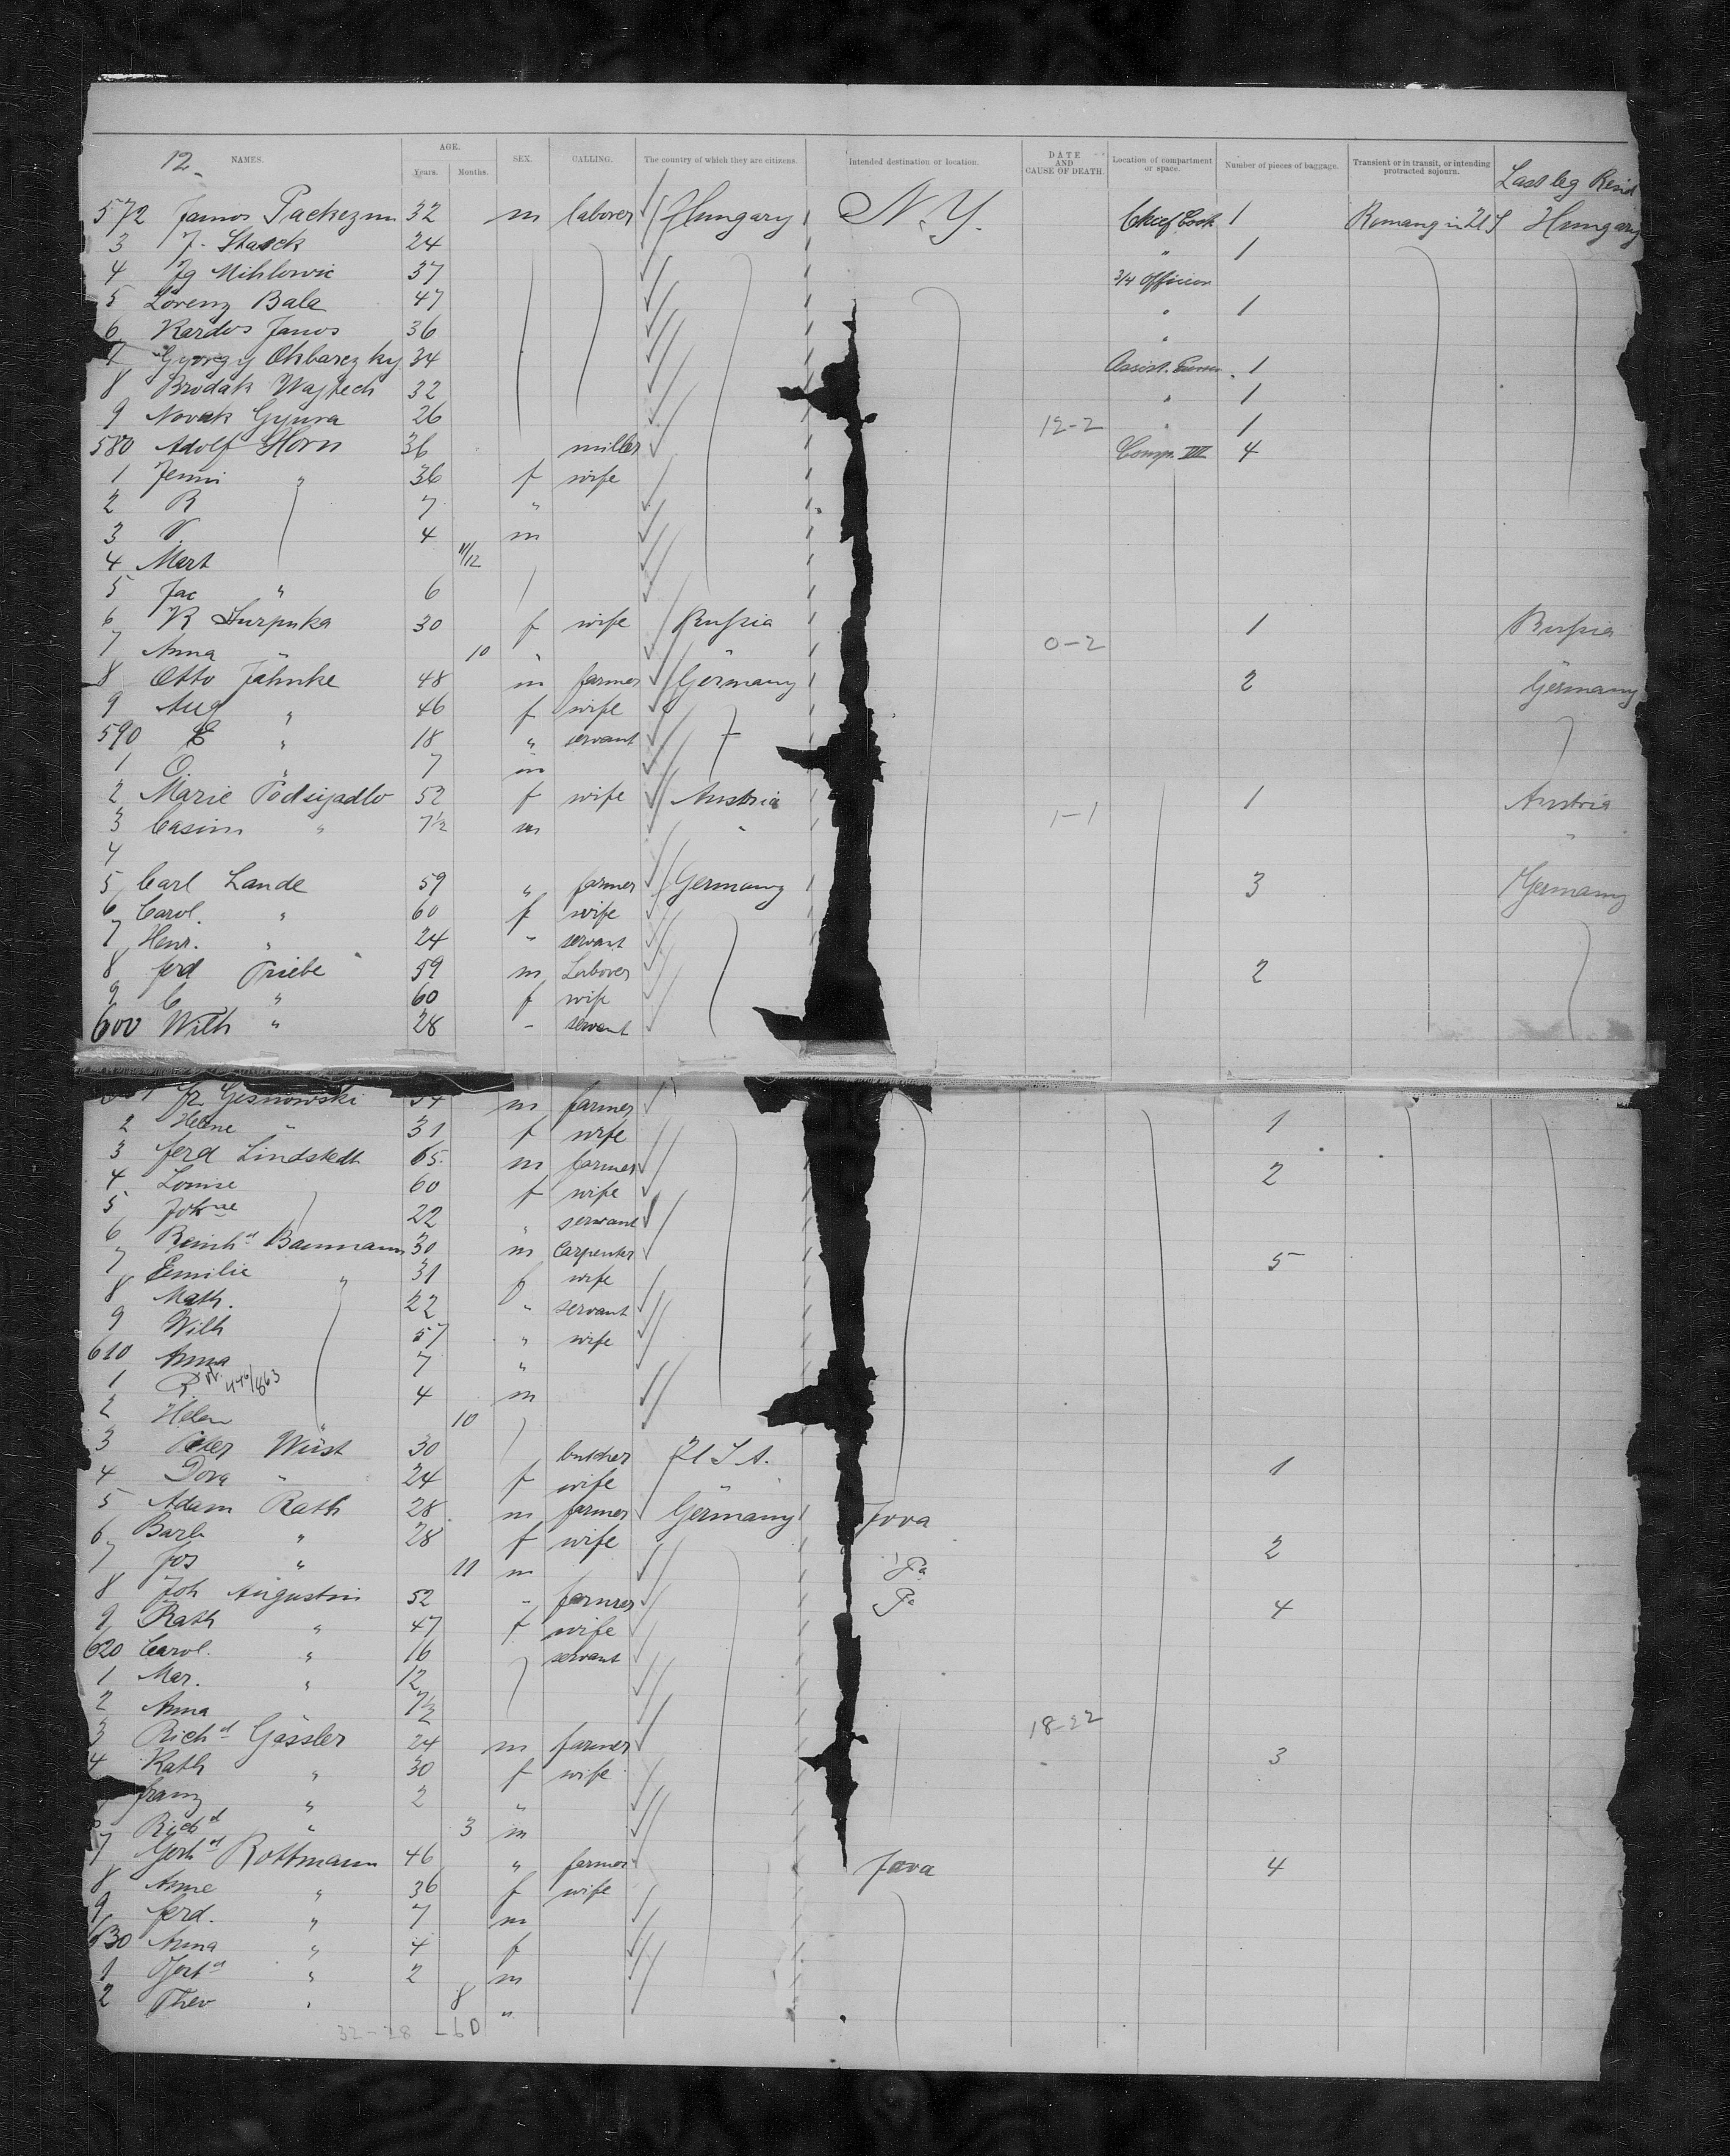 12 NAMES. AGE. Years. Months. SEX. CALLING. The country of which they are citizens. Intended destination or location. DATE AND CAUSE OF DEATH. Location of compartment or space. Number of pieces of baggage. Transient or in transit, or intending protracted sojourn. Last leg Resid
572 32 m labover Hungary N.Y. Chief Cook 1 Hungary
3 J. 24 " 1
4 37 3/4 Officer
5 Lorenz Bala 47 " 1
6 Kardos Janos 36 "
7 34 Assist. 1
8 Brodak Wajtech 32 " 1
9 Novak Gyura 26 12-2 " 1
580 Adolf Horn 36 miller Comp. VII 4
1 Jenni " 36 f wife
2 R 7 "
3 V. 4 m
4 Mart 11/12
5 Jac " 6
6 K 30 f wife Russia 1 Russia
7 Anna " 10 " " 0-2
8 Otto Jahnke 48 m farmer Germany 2 Germany
9 Aug " 46 f wife
590 E " 18 " servant
1 O " 7 m
2 Marie Podsijadlo 52 f wife Austria 1 Austria
3 Casim " 7½ m " 1-1 "
4
5 Carl Lande 59 " farmer Germany 3 Germany
6 Carol. " 60 f wife
7 Henr. " 24 " servant
8 ferd Priebe 59 m Labover 2
9 C " 60 f wife
600 Wilh " 28 " servant
Fr. Gesnowski 34 m farmer
2 Helene " 31 f wife 1
3 ferd Lindstedt 65 m farmer
4 Louise 60 f wife 2
5 22 " servant
6 Reinhd Baumann 30 m Carpenter
7 Emilie " 31 f wife 5
8 Math. 22 " servant
9 Wilh 57 " wife
610 Anna 7 "
1 R. 4 m
2 Helen " 10
3 Peter Wüst 30 butcher U S A.
4 Dora " 24 f wife 1
5 Adam Rath 28 m farmer Germany Jova
6 Barb " 28 f wife 2
7 Jos " 11 m Pa
8 Joh Augustin 52 " farmer Pa 4
9 Kath " 47 f wife
620 Carol. " 16 servant
1 Mar. " 12
2 Anna 7½
3 Richd Gässler 24 m farmer 18-22
4 Kath " 30 f wife 3
franz " 2 "
Richd " 3 m
7 Rottmann 46 " farmer Jova 4
8 Anne " 36 f wife
9 ferd. " 7 m
630 Anna " 4 f
1 " 2 m
2 Theo " 8 "
32-28 -60